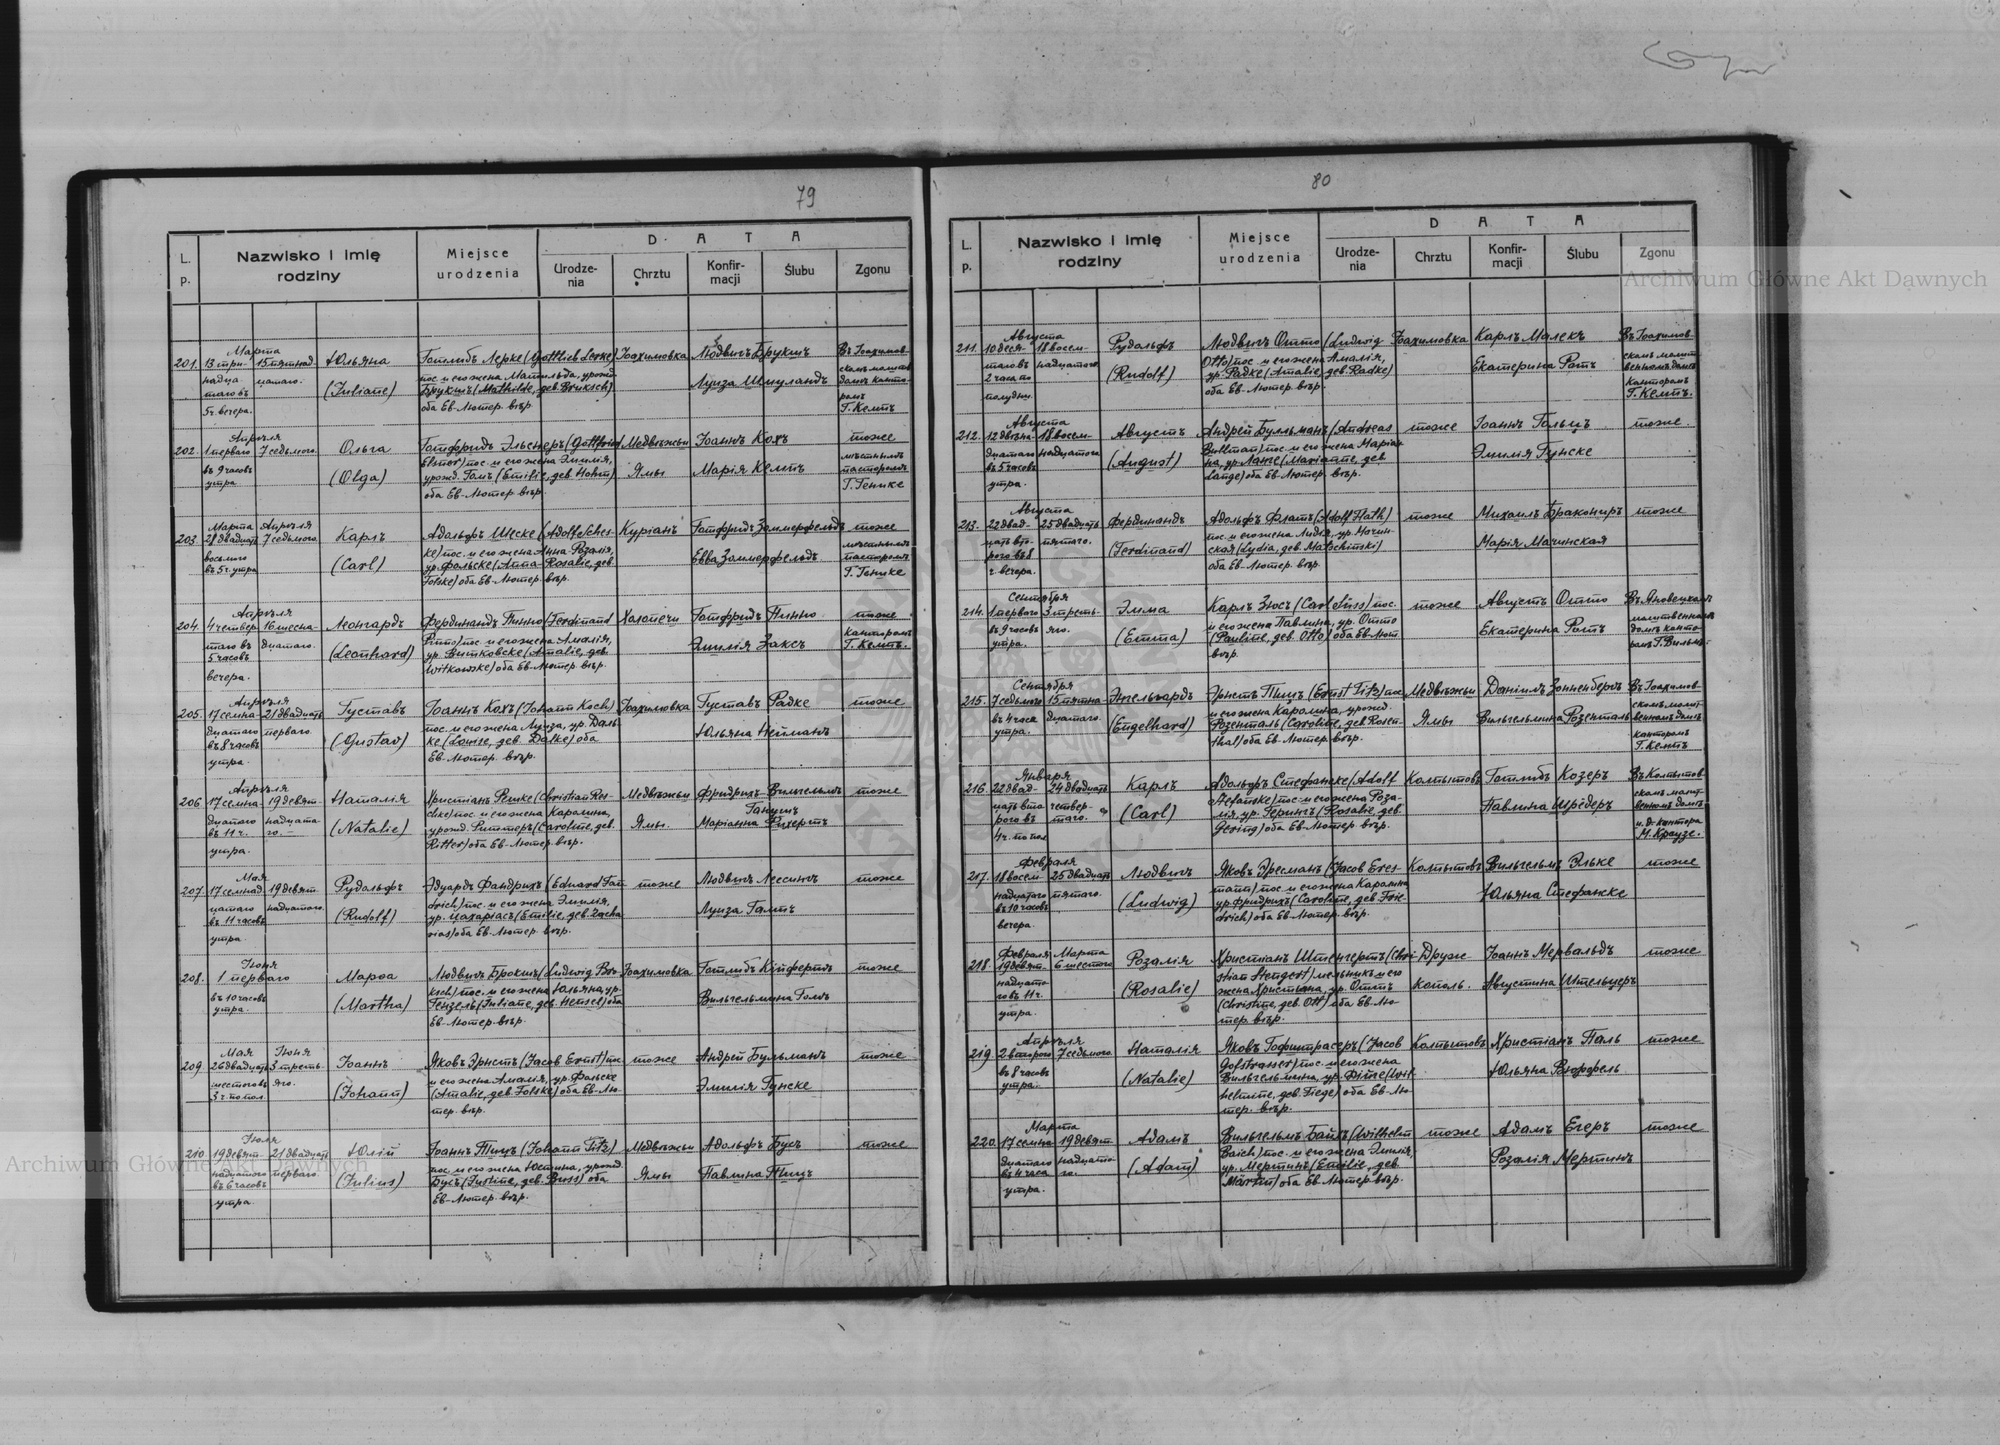 79
L. p.
Nazwisko i imię rodziny
Miejsce urodzenia
DATA
Urodzenia
Chrztu
Konfirmacji
Ślubu
Zgonu
201. Марта Юльяна Готлибъ Лерке (Gottlieb Lerke) Іоахимовка Людвигъ Брукшъ Въ Іоахимов-
13 три- 15 пятнад- пос. и его жена Матильда, урожд. скомъ молит.
надца- цатаго. (Juliane) Брукшъ (Mathilde, geb. Bruksch) Луиза Шмуландъ домѣ канто-
таго въ оба Ев.-Лютер. вѣр. ромъ
5 ч. вечера. Г. Кемтъ
202. Апрѣля Ольга Готфридъ Эльснеръ (Gottfried Медвѣжьи Іоаннъ Кохъ тоже
1 перваго 7 седьмого. Elsner) пос. и его жена Эмилія, мѣстнымъ
въ 9 часовъ (Olga) урожд. Гомъ (Emilie, geb. Hohm) Ямы Марія Кемтъ пасторомъ
утра оба Ев.-Лютер. вѣр. Г. Генике
203. Марта Апрѣля Карлъ Адольфъ Шеске (Adolf Sches- Куріанъ Готфридъ Зоммерфельдъ тоже
28 двадцать 7 седьмого. ke) пос. и его жена Анна-Розалія, мѣстнымъ
восьмого (Carl) ур. Фольске (Anna-Rosalie, geb. Евва Зоммерфельдъ пасторомъ
въ 5 ч. утра Folske) оба Ев.-Лютер. вѣр. Г. Генике
204. Апрѣля Леонгардъ Фердинандъ Пинно (Ferdinand Холопечи Готфридъ Пинно тоже
4 четвер- 16 шестна- Pinno) пос. и его жена Амалія, канторомъ
таго въ дцатаго. (Leonhard) ур. Витковске (Amalie, geb. Эмилія Заксъ Г. Кемтъ.
5 часовъ Witkowske) оба Ев.-Лютер. вѣр.
вечера.
205. Апрѣля Густавъ Іоаннъ Кохъ (Johann Koch) Іоахимовка Густавъ Радке тоже
17 семна- 21 двадцать пос. и его жена Луиза, ур. Даль-
дцатаго перваго. (Gustav) ке (Louise, geb. Dalke) оба Юльяна Нейманъ
въ 8 часовъ Ев.-Лютер. вѣр.
утра.
206. Апрѣля Наталія Христіанъ Решке (Christian Res- Медвѣжьи Фридрихъ-Вильгельмъ тоже
17 семна- 19 девят- chke) пос. и его жена Каролина,
дцатаго надцата- (Natalie) урожд. Риттеръ (Caroline, geb. Ямы. Маріанна Рихертъ
въ 11 ч. го. Ritter) оба Ев.-Лютер. вѣр.
утра.
207. Мая Рудольфъ Эдуардъ Фандрихъ (Eduard Fan- тоже Людвигъ Лессингъ тоже
17 семнад- 19 девят- drich) пос. и его жена Эмилія,
цатаго надцатаго. (Rudolf) ур. Цахаріасъ (Emilie, geb. Zacha- Луиза Гамтъ
въ 11 часовъ rias) оба Ев.-Лютер. вѣр.
утра.
208. Іюня Марѳа Людвигъ Брокшъ (Ludwig Bro- Іоахимовка Готлибъ Кюфертъ тоже
1 перваго ksch) пос. и его жена Юльяна ур.
въ 10 часовъ (Martha) Гензель (Juliane, geb. Hensel) оба Вильгельмина Гольдъ
утра. Ев.-Лютер. вѣр.
209. Мая Іюня Іоаннъ Яковъ Эрнстъ (Jacob Ernst) пос. тоже Андрей Бульманъ тоже
26 двадцать 3 треть- и его жена Амалія, ур. Фольске
шестого въ яго. (Johann) (Amalie, geb. Folske) оба Ев.-Лю- Эмилія Гунске
3 ч. попол. тер. вѣр.
210. Іюля Юлій Іоаннъ Тицъ (Johann Titz) Медвѣжьи Адольфъ Бусъ тоже
19 девят- 21 двадцать пос. и его жена Юстина, урожд.
надцатаго перваго. (Julius) Бусъ (Justine, geb. Buss) оба Ямы Павлина Ницъ
въ 6 часовъ Ев.-Лютер. вѣр.
утра.
80
L. p.
Nazwisko i imię rodziny
Miejsce urodzenia
DATA
Urodzenia
Chrztu
Konfirmacji
Ślubu
Zgonu
211. Августа Рудольфъ Людвигъ Отто (Ludwig Іоахимовка Карлъ Малекъ Въ Іоахимов-
10 деся- 18 восем- Otto) пос. и его жена Амалія, скомъ молит-
таго въ надцатаго (Rudolf) ур. Радке (Amalie, geb. Radke) Екатерина Ротъ венномъ домѣ
2 часа по оба Ев.-Лютер. вѣр. канторомъ
полудни. Г. Кемтъ.
212. Августа Августъ Андрей Булльманъ (Andreas тоже Іоаннъ Гольцъ тоже.
12 двѣна- 18 восем- Bullman) пос. и его жена Маріан-
дцатаго надцатаго (August) на, ур. Ланге (Marianne, geb. Эмилія Гунске
въ 5 часовъ Lange) оба Ев.-Лютер. вѣр.
утра.
213. Августа Фердинандъ Адольфъ Флатъ (Adolf Flath) тоже Михаилъ Браконіръ тоже
22 двад- 25 двадцать пос. и его жена Лидія, ур. Мачин-
цать вто- пятаго. (Ferdinand) ская (Lydia, geb. Matschinski) Марія Мачинская
рого въ 8 оба Ев.-Лютер. вѣр.
ч. вечера.
214. Сентября Эмма Карлъ Зюсъ (Carl Süss) пос. тоже Августъ Отто Въ Яновецкомъ
1 перваго 3 треть- и его жена Павлина, ур. Отто молитвенномъ
въ 9 часовъ яго. (Emma) (Pauline, geb. Otto) оба Ев.-Лют. Екатерина Ротъ домѣ канто-
утра. вѣр. ромъ Г. Вильмъ.
215. Сентября Энгельгардъ Эрнстъ Тицъ (Ernst Titz) пос. Медвѣжьи Даніилъ Зонненбергъ Въ Іоахимов-
7 седьмого 15 пятна- и его жена Каролина, урожд. скомъ молит-
въ 4 часа дцатаго. (Engelhard) Розенталь (Caroline, geb. Rosen- Ямы Вильгельмина Розенталь венномъ домѣ
утра. thal) оба Ев.-Лютер. вѣр. канторомъ
Г. Кемтъ
216. Января Карлъ Адольфъ Стефанске (Adolf Колпытовъ Готлибъ Козеръ Въ Колпытов-
22 двад- 24 двадцать Stefanske) пос. и его жена Роза- скомъ молит-
цать вто- четвер- (Carl) лія, ур. Герингъ (Rosalie, geb. Павлина Шрёдеръ венномъ домѣ
рого въ таго. Gering) оба Ев.-Лютер. вѣр. и. д. кантора
4 ч. попол. М. Краузе.
217. Февраля Людвигъ Яковъ Эресманъ (Jacob Eres- Колпытовъ Вильгельмъ Эльке тоже
18 восем- 25 двадцать mann) пос. и его жена Каролина
надцатаго пятаго. (Ludwig) ур. Фридрихъ (Caroline, geb. Frie- Юльяна Стефанке
въ 10 часовъ drich) оба Ев.-Лютер. вѣр.
вечера.
218. Февраля Марта Розалія Христіанъ Штенгертъ (Chri- Друже- Іоаннъ Мервальдъ тоже
19 девят- 6 шестого stian Stengert) мельникъ и его
надцата- (Rosalie) жена Христина, ур. Оттъ кополь. Августина Штельцеръ
го въ 11 ч. (Christine, geb. Ott) оба Ев.-Лю-
утра. тер. вѣр.
219. Апрѣля Наталія Яковъ Гофштрасеръ (Jacob Колпытовъ Христіанъ Паль тоже
2 второго 7 седьмого. Gofstrasser) пос. и его жена
въ 8 часовъ (Natalie) Вильгельмина, ур. Фиге (Wil- Юльяна Вюффель
утра. helmine, geb. Fiege) оба Ев.-Лю-
тер. вѣр.
220. Марта Адамъ Вильгельмъ Байхъ (Wilhelm тоже Адамъ Егеръ тоже
17 семна- 19 девят- Baich) пос. и его жена Эмилія,
дцатаго надцата- (Adam) ур. Мертинъ (Emilie, geb. Розалія Мертинъ
въ 4 часа го. Martin) оба Ев.-Лютер. вѣр.
утра.
Archiwum Główne Akt Dawnych
Archiwum Główne Akt Dawnych